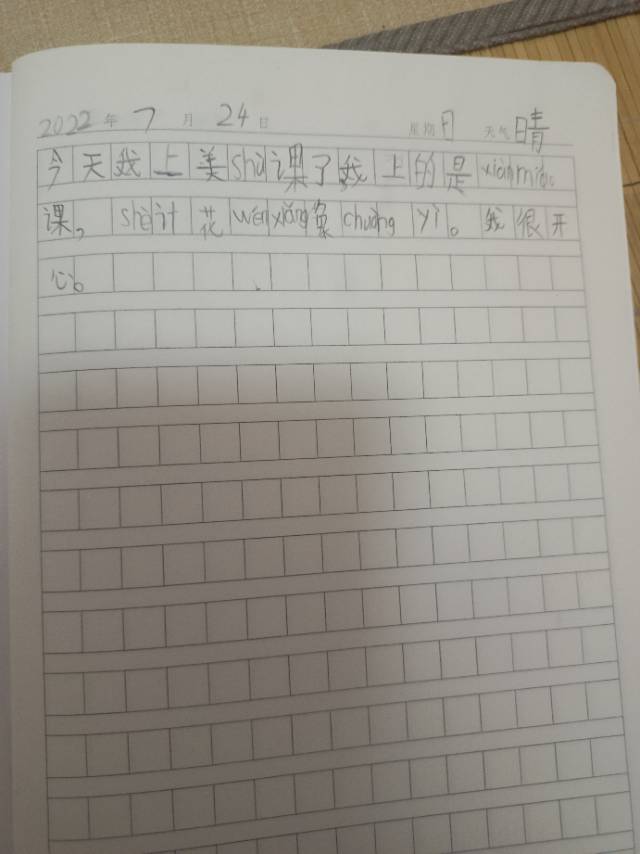 2022年7月24日 星期日 天气晴
今天我上美shù课了我上的是xiànmiáo
课，shè计花wénxiǎng象chuàng yì。我很开
心。